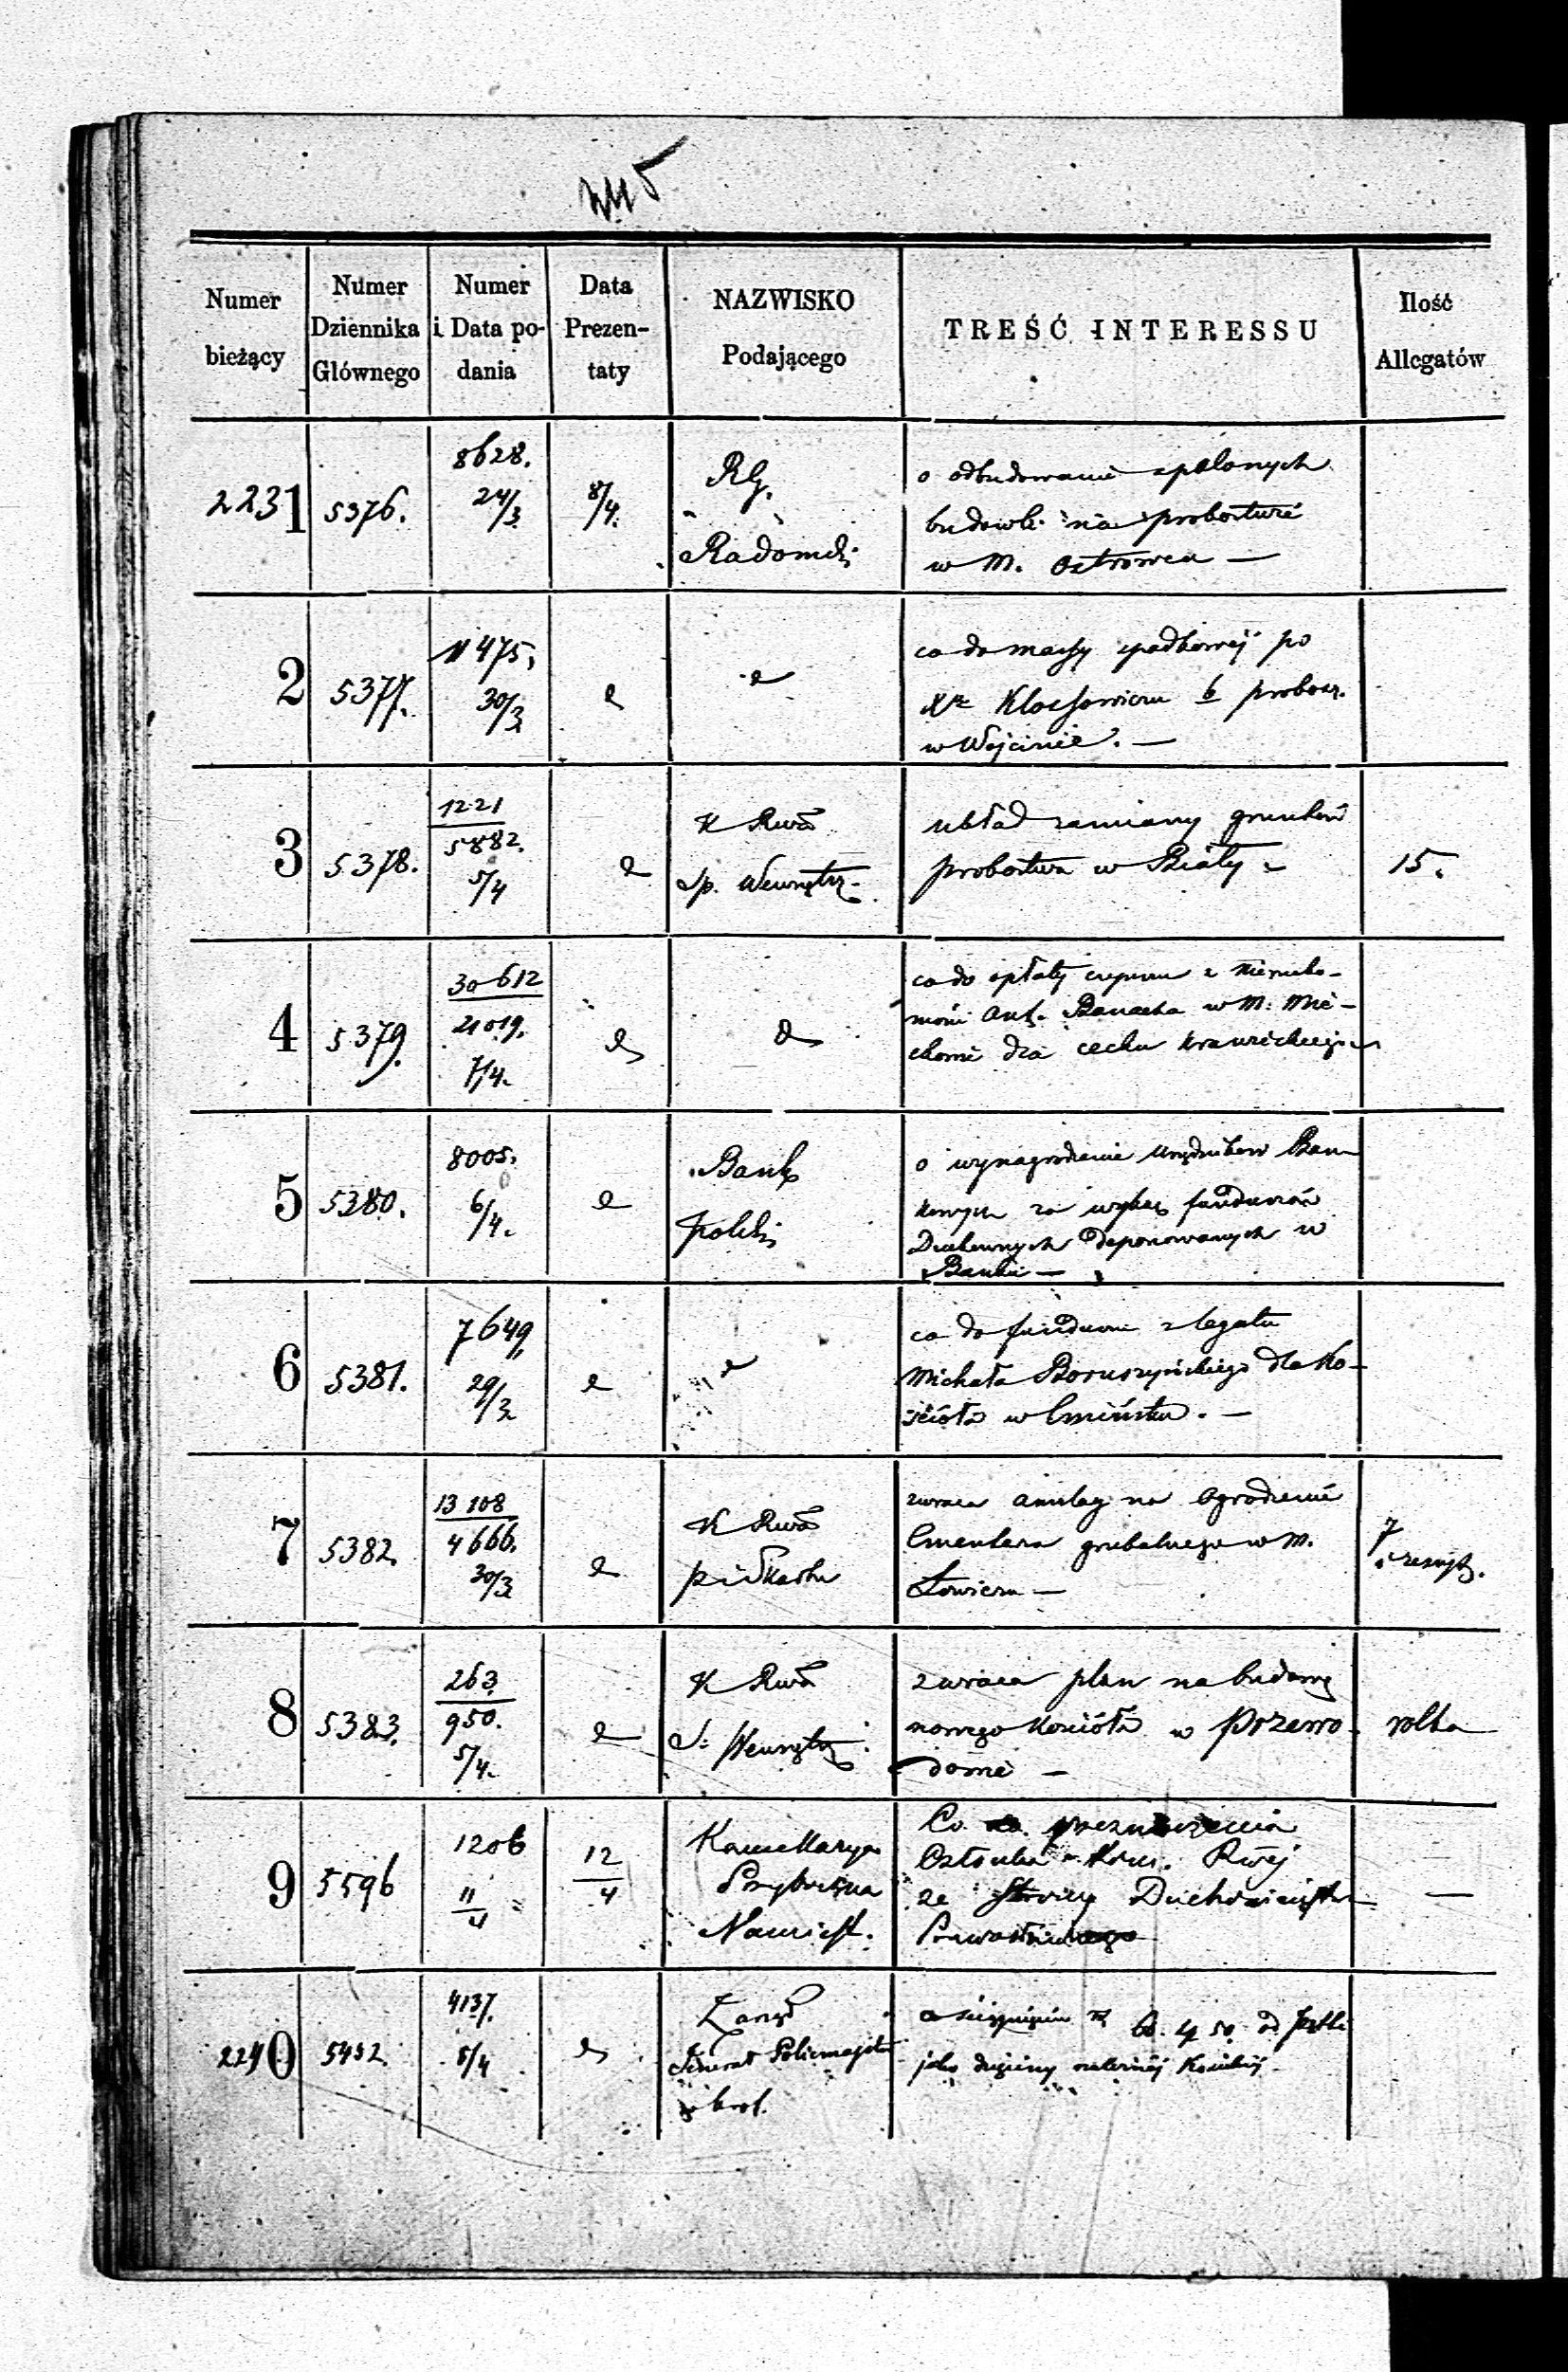 Numer bieżący | Numer Dziennika Głównego | Numer i Data podania | Data Prezentaty | NAZWISKO Podającego | TREŚĆ INTERESSU | Ilość Allegatów
2231 | 5376. | 8628. 24/3. | 8/4. | RG. Radomski | o odbudowanie spalonych
budowli na probostwie
w M. Ostrowcu —
2 | 5377. | 11475, 30/3 | co do massy spadkowej po
Xu Klossowiczu b probosz.
w Wojcinie. —
3 | 5378. | 1221 5882. 5/4 | K Rwa Sp. Wewnętrz. | układ zamiany gruntów
probostwa w Biały | 15.
4 | 5379. | 30612 21019. 7/4. | co do opłaty czynszu z nierucho-
mości Ant. Banacha w M: Mie-
chowie dla cechu krawieckiego
5 | 5380. | 8005. 6/4. | Bank polski | o wynagrodzenie urzędników Ban-
kowych za wykaz funduszów
Duchownych deponowanych w
Banku —
6 | 5381. | 7649, 29/3 | co do funduszu z legatu
Michała Boruszyńskiego dla Ko-
ścioła w Cmińsku. —
7 | 5382. | 13108 4666. 30/3 | K Rwa P i Skarbu | zwraca anszlag na ogrodzenie
Cmentarza grzebalnego w M.
Łowiczu — | 7 i zeszyt.
8 | 5383. | 263. 950. 5/4. | K Rwa S: Wewnętrz. | zwraca plan na budowę
nowego kościoła w Przewo-
domie — | rolka
9 | 5596 | 1206 11/4 | 12/4 | Kancellarya Przyboczna Namiest. | Co do przeznaczenia
Członka Kom. Rwej
ze Strony Duchowieństwa
Prawosławnego | —
2240 | 5452. | 4137. 5/4 | Zarząd Generał Policmajstra w król. | o ściągnięciu rs 60. k 50. od